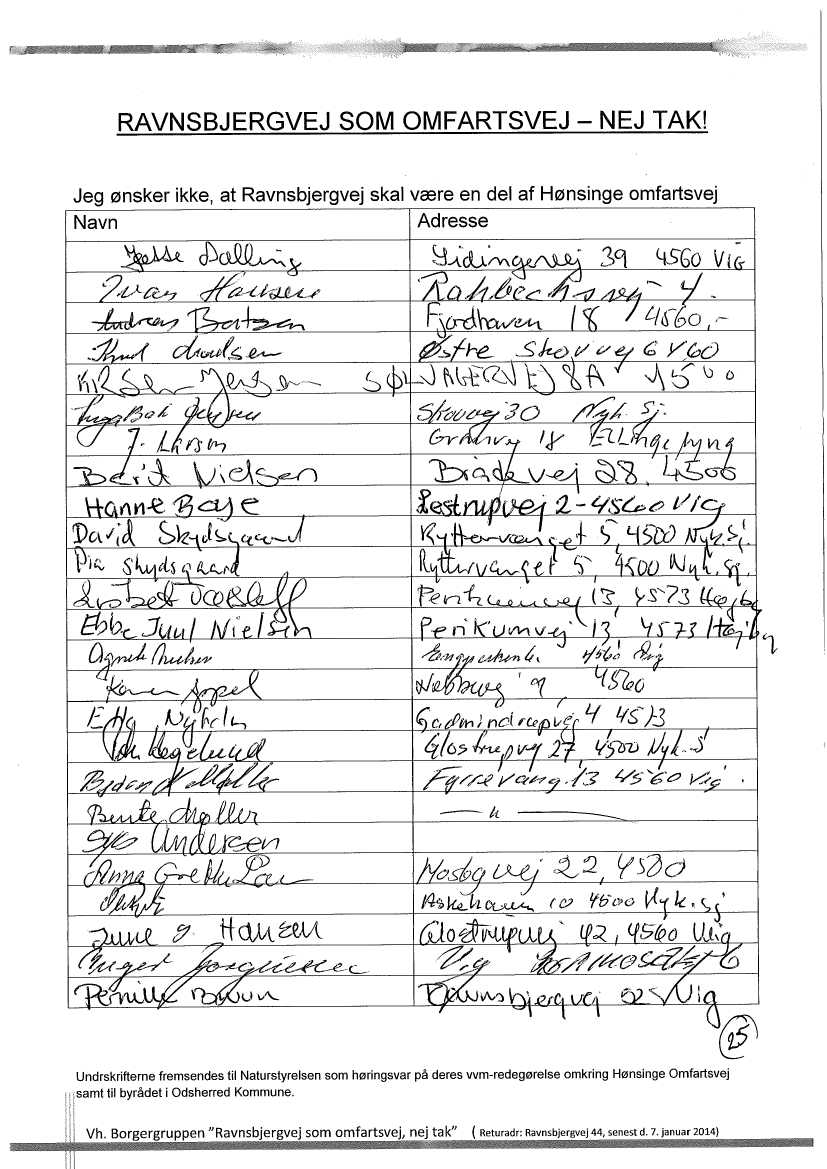 RAVNSBJERGVEJ SOM OMFARTSVEJ – NEJ TAK!
Jeg ønsker ikke, at Ravnsbjergvej skal være en del af Hønsinge omfartsvej
Navn Adresse
Dalling Sidingevej 39 4560 Vig
Ivan Hansen Rahbecksvej 4.
Andreas Fjordhaven 18 4560,-
Knud Knudsen Østre Skovvej 6 4560
Jensen SØLVAGERVEJ 8A 4500
Inga Bak Jensen Skovvej 30 Nyk. Sj.
J. Larsen 18 Ellinge Lyng
Berit Nielsen 28. 4500
Hanne Boye Lestrupvej 2-4560 Vig
David Skydsgaard Ryttervænget 5, 4500 Nyk. Sj.
Pia Skydsgaard Ryttervænget 5, 4500 Nyk. Sj.
Perikumvej 13, 4573 Højby
Ebbe Juul Nielsen Perikumvej 13, 4573 Højby
Agnete Nielsen 4560 Vig
Karen Appel 9, 4560
4 4573
Hegelund Glostrupvej 27, 4500 Nyk. S
Fyrrevang. 13 4560 Vig.
Bente Møller — " —
Andersen
Anna Grethe Mosbyvej 22, 4500
Askehaven 10 4500 Nyk. Sj
June G. Hansen Glostrupvej 42, 4560 Vig
Inger Jørgensen Vig 6
Pernille Ravnsbjergvej Vig
25
Undrskrifterne fremsendes til Naturstyrelsen som høringsvar på deres vvm-redegørelse omkring Hønsinge Omfartsvej
samt til byrådet i Odsherred Kommune.
Vh. Borgergruppen "Ravnsbjergvej som omfartsvej, nej tak" ( Returadr: Ravnsbjergvej 44, senest d. 7. januar 2014)